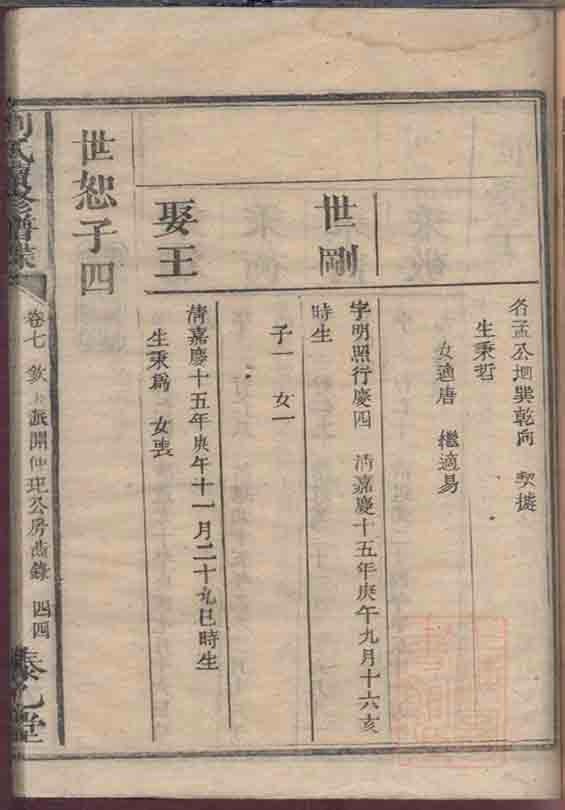 名孟公地巽乾向 契據
生秉哲
女適唐 繼適易
世剛
字明照行慶四 清嘉慶十五年庚午九月十六亥
時生
子一 女一
娶王
清嘉慶十五年庚午十一月二十九巳時生
生秉爲 女喪
世恕子四
劉氏續修譜
卷七 欽 派開仲玘公房齒錄 四四
泰乙堂